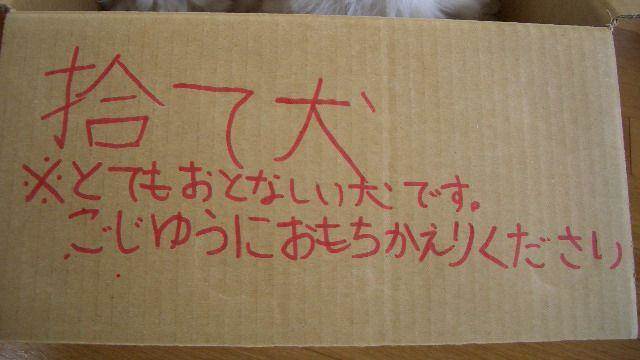 捨て犬
※とてもおとなしい犬です。
ごじゆうにおもちかえりください